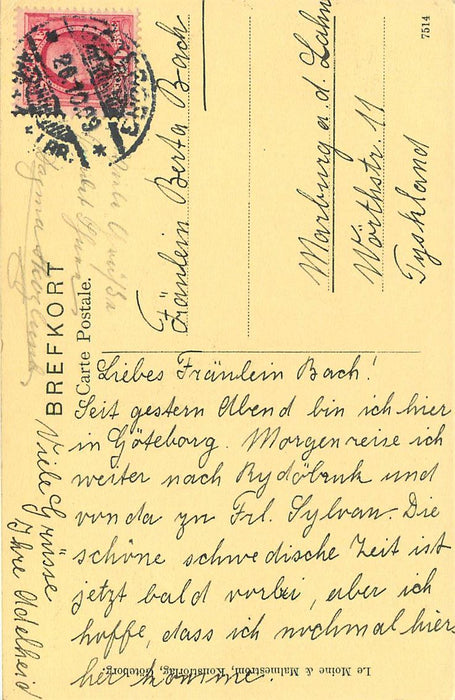 BREFKORT
Carte Postale.
7514
Fräulein Berta Bach
Marburg a. d. Lahn
Wörthstr. 11
Tyskland
Liebes Fräulein Bach!
Seit gestern Abend bin ich hier
in Göteborg. Morgen reise ich
weiter nach Rydöbruk und
von da zu Frl. Sylvan. Die
schöne schwedische Zeit ist
jetzt bald vorbei, aber ich
hoffe, dass ich nochmal hier-
her komme.
Viele Grüsse
Ihre Adelheid
Le Moine & Malmeström, Konstförlag, Göteborg.